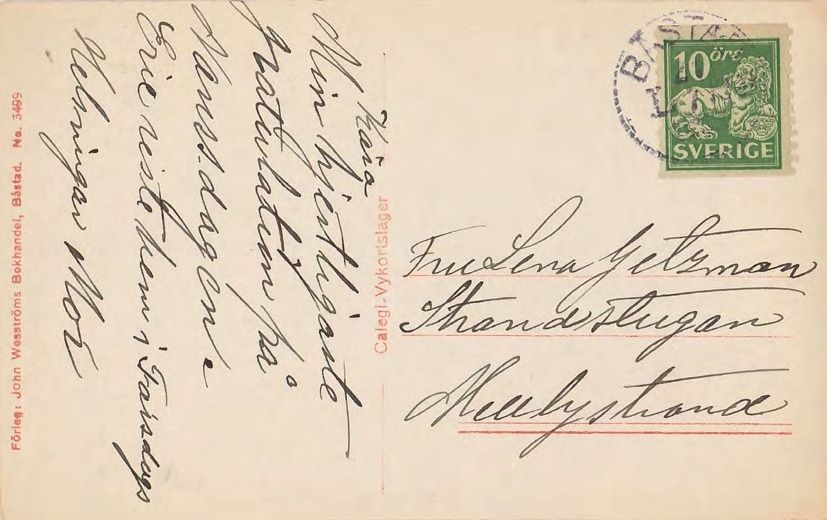 Kära
Min hjertligaste
gratulation på
Namnsdagen.
Eric reste hem i Torsdags
Helsningar Mor
Fru Lena Getzman
Strandstugan
Mellbystrand
BÅSTAD
10 öre
SVERIGE
Calegi-Vykortslager
Förlag: John Wesströms Bokhandel, Båstad. No. 3499